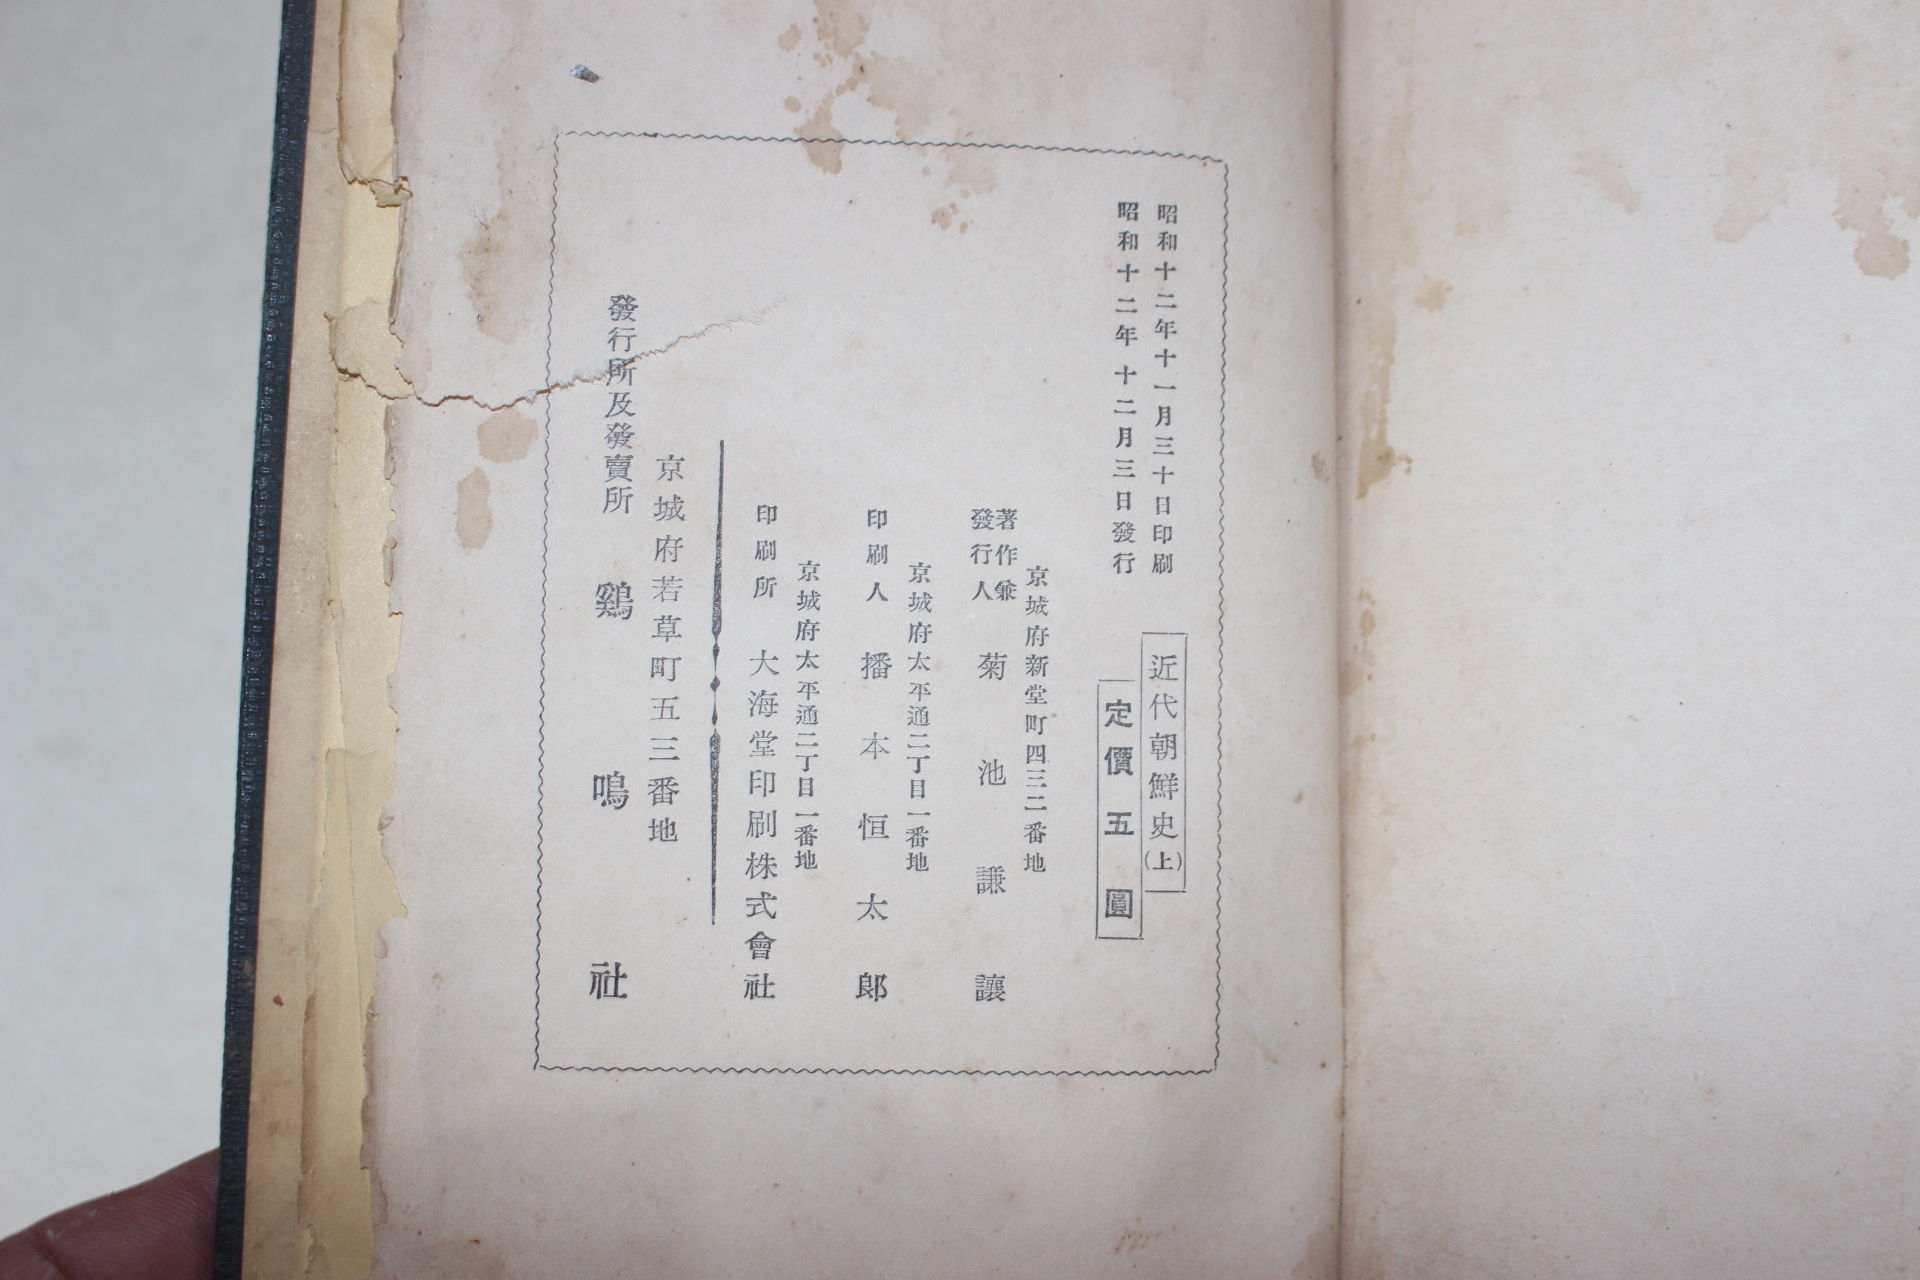 昭和十二年十一月三十日印刷
昭和十二年十二月三日發行
近代朝鮮史(上)
定價五圓
京城府新堂町四三二番地
著作兼
發行人
菊池謙讓
京城府太平通二丁目一番地
印刷人 播本恒太郎
京城府太平通二丁目一番地
印刷所 大海堂印刷株式會社
京城府若草町五三番地
發行所及發賣所 鷄鳴社